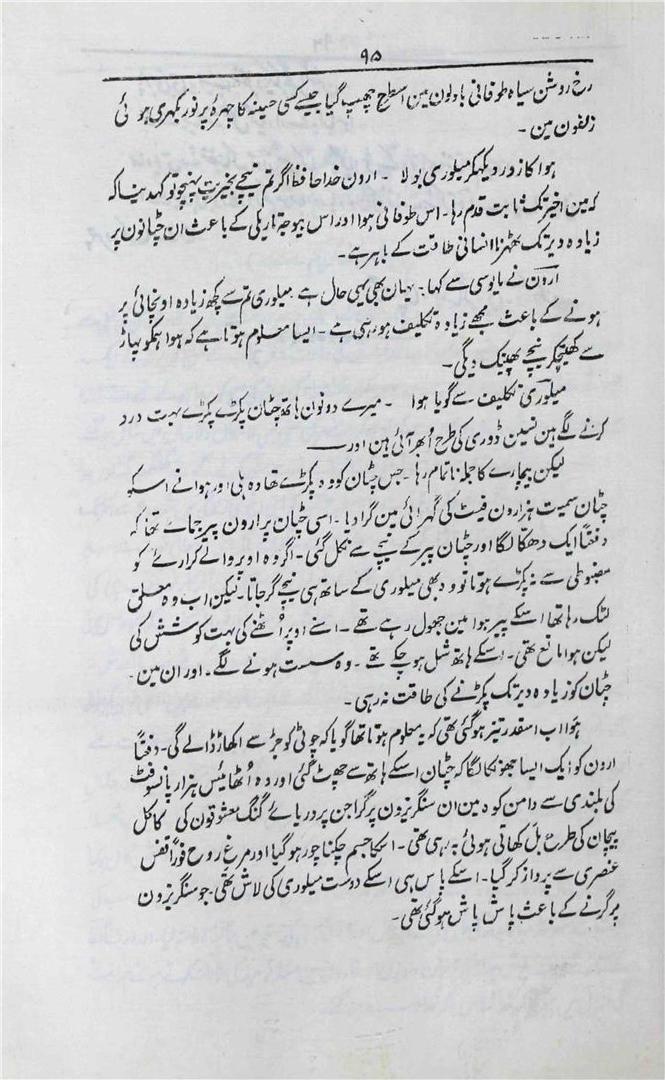 ۹۵
رخ روشن سیاہ طوفانی بادلون مین اسطرح چھپ گیا جیسے کسی حسینہ کا چہرۂ پر نور بکھری ہوئی
زلفون مین ۔
ہوا کا زور دیکھکر میلوری بولا ۔ ارون خدا حافظ اگر تم نیچے بخیریت پہنچو تو کہدینا کہ
کہ مین اخیر تک ثابت قدم رہا ۔ اس طوفانی ہوا اور اس بیوجہ تاریکی کے باعث ان چٹانون پر
زیادہ دیر تک ٹھہرنا انسانی طاقت کے باہر ہے ۔
ارون نے مایوسی سے کہا: یہان بھی یہی حال ہے میلوری تم سے کچھ زیادہ اونچائی پر
ہونے کے باعث مجھے زیادہ تکلیف ہو رہی ہے ۔ ایسا معلوم ہوتا ہے کہ ہوا ہمکو پہاڑ
سے کھینچکر نیچے پھینک دیگی ۔
میلوری تکلیف سے گویا ہوا ۔ میرے دونون ہاتھ چٹان پکڑے پکڑے بہت درد
کرنے لگے ہین نسین ڈوری کی طرح اُبھر آئی ہین اور ــــ
لیکن بیچارے کا جملہ ناتمام رہا ۔ جس چٹان کو وہ پکڑے تھا وہ ہلی اور ہوا نے اسکو
چٹان سمیت ہزارون فیٹ کی گہرائی مین گرا دیا ۔ اسی چٹان پر ارون پیر جمائے تھا کہ
دفعتاً ایک دھکا لگا اور چٹان پیر کے نیچے سے نکل گئی ۔ اگر وہ اوپر والے کرارے کو
مضبوطی سے نہ پکڑے ہوتا تو وہ بھی میلوری کے ساتھ ہی نیچے گر جاتا ۔ لیکن اب وہ معلق
لٹک رہا تھا اسکے پیر ہوا مین جھول رہے تھے ۔ اسنے اوپر اُٹھنے کی بہت کوشش کی
لیکن ہوا مانع تھی ۔ اسکے ہاتھ شل ہو چکے تھے ۔ وہ سست ہونے لگے ۔ اور ان مین ۔
چٹان کو زیادہ دیر تک پکڑنے کی طاقت نہ رہی ۔
ہوا اب اسقدر تیز ہو گئی تھی کہ یہ معلوم ہوتا تھا گویا کہ چوٹی کو جڑ سے اکھاڑ ڈالے گی ۔ دفعتاً
ارون کو ایک ایسا جھونکا لگا کہ چٹان اسکے ہاتھ سے چھٹ گئی اور وہ اُٹھائیس ہزار پانسو فٹ
کی بلندی سے دامن کوہ مین ان سنگریزون پر گرا جن پر دریائے گنگ معشوقون کی کاکل
پیچان کی طرح بل کھاتی ہوئی بہ رہی تھی ۔ اسکا جسم چکنا چور ہو گیا اور مرغ روح فوراً قفس
عنصری سے پرواز کر گیا ۔ اسکے پاس ہی اسکے دوست میلوری کی لاش تھی ۔ جو سنگریزون
پر گرنے کے باعث پاش پاش ہو گئی تھی ۔